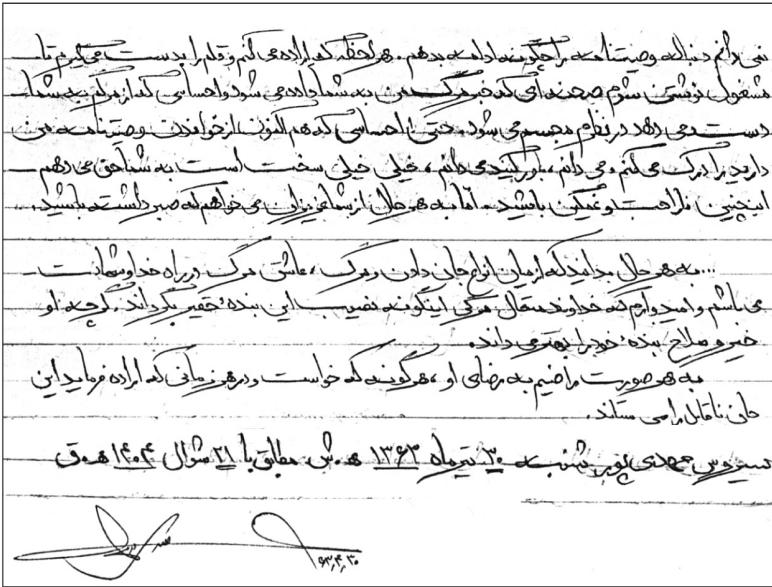 نمی دانم دنباله وصیتنامه را چگونه ادامه بدهم. هر لحظه که اراده می کنم و قلم را بدست می گیرم تا
مشغول نوشتن شوم صحنه ای که خبر مرگ من به شما داده می شود و احساسی که از مرگم به شما
دست می دهد در نظرم مجسم می شود. حتی احساسی که هم اکنون از خواندن وصیتنامه من
دارید را درک می کنم. می دانم، باور کنید می دانم، خیلی خیلی سخت است به شما حق می دهم
اینچنین ناراحت و غمگین باشید. اما به هر حال از شما عزیزان می خواهم که صبر داشته باشید.
...به هر حال بدانید که از میان انواع جان دادن و مرگ، عاشق مرگ در راه خدا و شهادت
می باشم و امیدوارم که خداوند متعال مرگی اینگونه نصیب این بنده حقیر بگرداند. گرچه او
خیر و صلاح بنده خود را بهتر می داند.
به هر صورت راضیم به رضای او، هر گونه که خواست و در هر زمانی که اراده فرماید این
جان ناقابل را می ستاند.
سیروس مهدی پور شنبه ۳۰ تیر ماه ۱۳۶۳ ه.ش مطابق با ۲۱ شوال ۱۴۰۴ ه.ق
۶۳٫۴٫۳۰